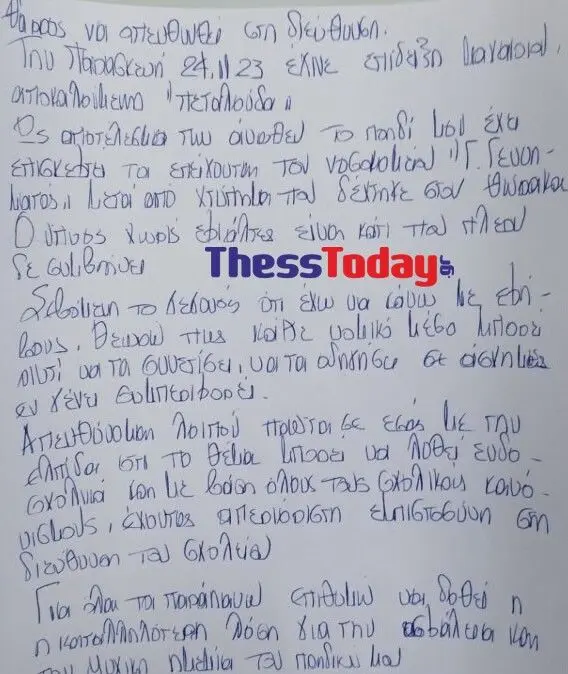 θάρρος να απευθυνθεί στη διεύθυνση.
Την Παρασκευή 24.11.23 έγινε επίδειξη
αποκαλούμενο "πεταλούδα"
Ως αποτέλεσμα των άνωθεν το παιδί μου έχει
επισκεφτεί τα επείγοντα του νοσοκομείου "Γ. Γεννη-
ματάς" μετά από χτύπημα που δέχτηκε στον θώρακα
Ο ύπνος χωρίς εφιάλτες είναι κάτι που πλέον
δε συμβαίνει
ThessToday.gr
Σέβομαι το γεγονός ότι έχω να κάνω με εφή-
βους. Θεωρώ πως κάθε νομικό μέσο μπορεί
αντί να τα συνετίσει, να τα οδηγήσει σε άσχημες
εν γένει συμπεριφορές.
Απευθύνομαι λοιπόν πρώτα σε εσάς με την
ελπίδα ότι το θέμα μπορεί να λυθεί ενδο-
σχολικά και με βάση όλους τους σχολικούς κανο-
νισμούς, έχοντας απεριόριστη εμπιστοσύνη στη
διεύθυνση του σχολείου
Για όλα τα παραπάνω επιθυμώ να δοθεί η
η καταλληλότερη λύση για την ασφάλεια και
την ψυχική ηρεμία του παιδιού μου